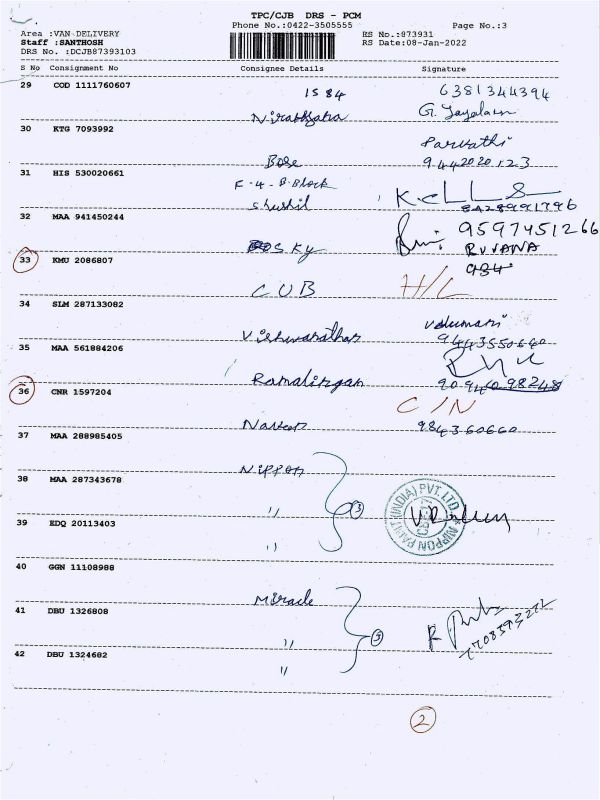 TPC/CJB DRS - PCM
Phone No.:0422-3505555 Page No.:3
Area :VAN DELIVERY RS No.:873931
Staff :SANTHOSH RS Date:08-Jan-2022
DRS No. :DCJB87393103
S No Consignment No Consignee Details Signature
29 COD 1111760607 1584 6381344394
G. Jayalam
30 KTG 7093992 Parvathi
Bose 9442020123
31 HIS 530020661 F-4-B-Block
Sushil
32 MAA 941450244 9597451266
SKY RUVANA
33 KMU 2086807 984
CUB H/L
34 SLM 287133082
Vishwanathan 9443550640
35 MAA 561884206
Ramalingam
36 CNR 1597204 C/N
Naveen 984360660
37 MAA 288985405
Nippon
38 MAA 287343678
" 3
NIPPON PAINT (INDIA) PVT. LTD.
39 EDQ 20113403
"
40 GGN 11108988
Miracle
41 DBU 1326808
" 3
42 DBU 1324682
"
2